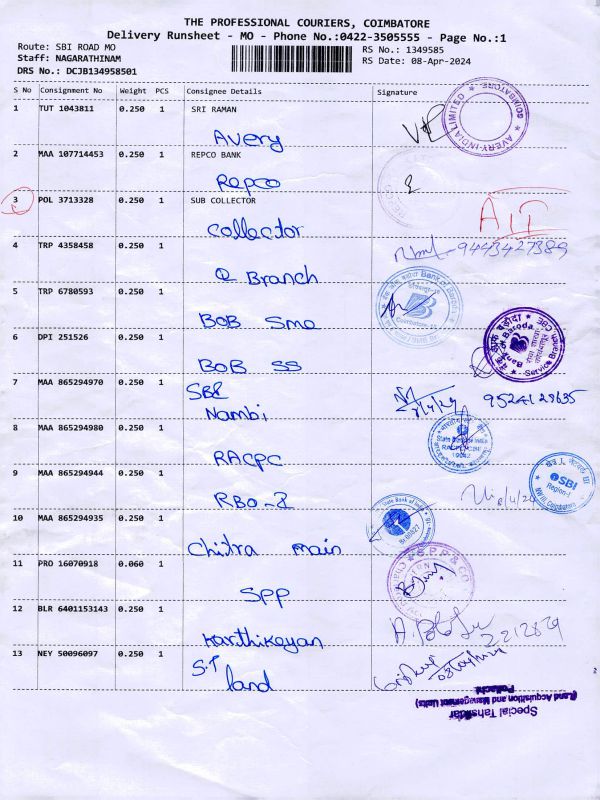 THE PROFESSIONAL COURIERS, COIMBATORE
Delivery Runsheet - MO - Phone No.:0422-3505555 - Page No.:1
Route: SBI ROAD MO
RS No.: 1349585
Staff: NAGARATHINAM
RS Date: 08-Apr-2024
DRS No.: DCJB134958501
S No Consignment No Weight PCS Consignee Details Signature
1 TUT 1043811 0.250 1 SRI RAMAN
Avery
AVERY INDIA LIMITED
2 MAA 107714453 0.250 1 REPCO BANK
Repco
3 POL 3713328 0.250 1 SUB COLLECTOR
Collector
4 TRP 4358458 0.250 1
9443427389
Q Branch
5 TRP 6780593 0.250 1
Bank of Baroda
BOB Sme
6 DPI 251526 0.250 1
Bank of Baroda
Service Branch CBE
BOB SS
7 MAA 865294970 0.250 1
SBI
9524128635
Nambi
8 MAA 865294980 0.250 1
State Bank of India
RACPC
9 MAA 865294944 0.250 1
SBI
Region-I
RBO-I
10 MAA 865294935 0.250 1
State Bank of India
Chitra main
11 PRO 16070918 0.060 1
S.P.P & CO
SPP
12 BLR 6401153143 0.250 1
2212829
Karthikeyan
13 NEY 50096097 0.250 1
S.T
land
Special Tahsildar
(Land Acquisition and Management Units)
Pollachi